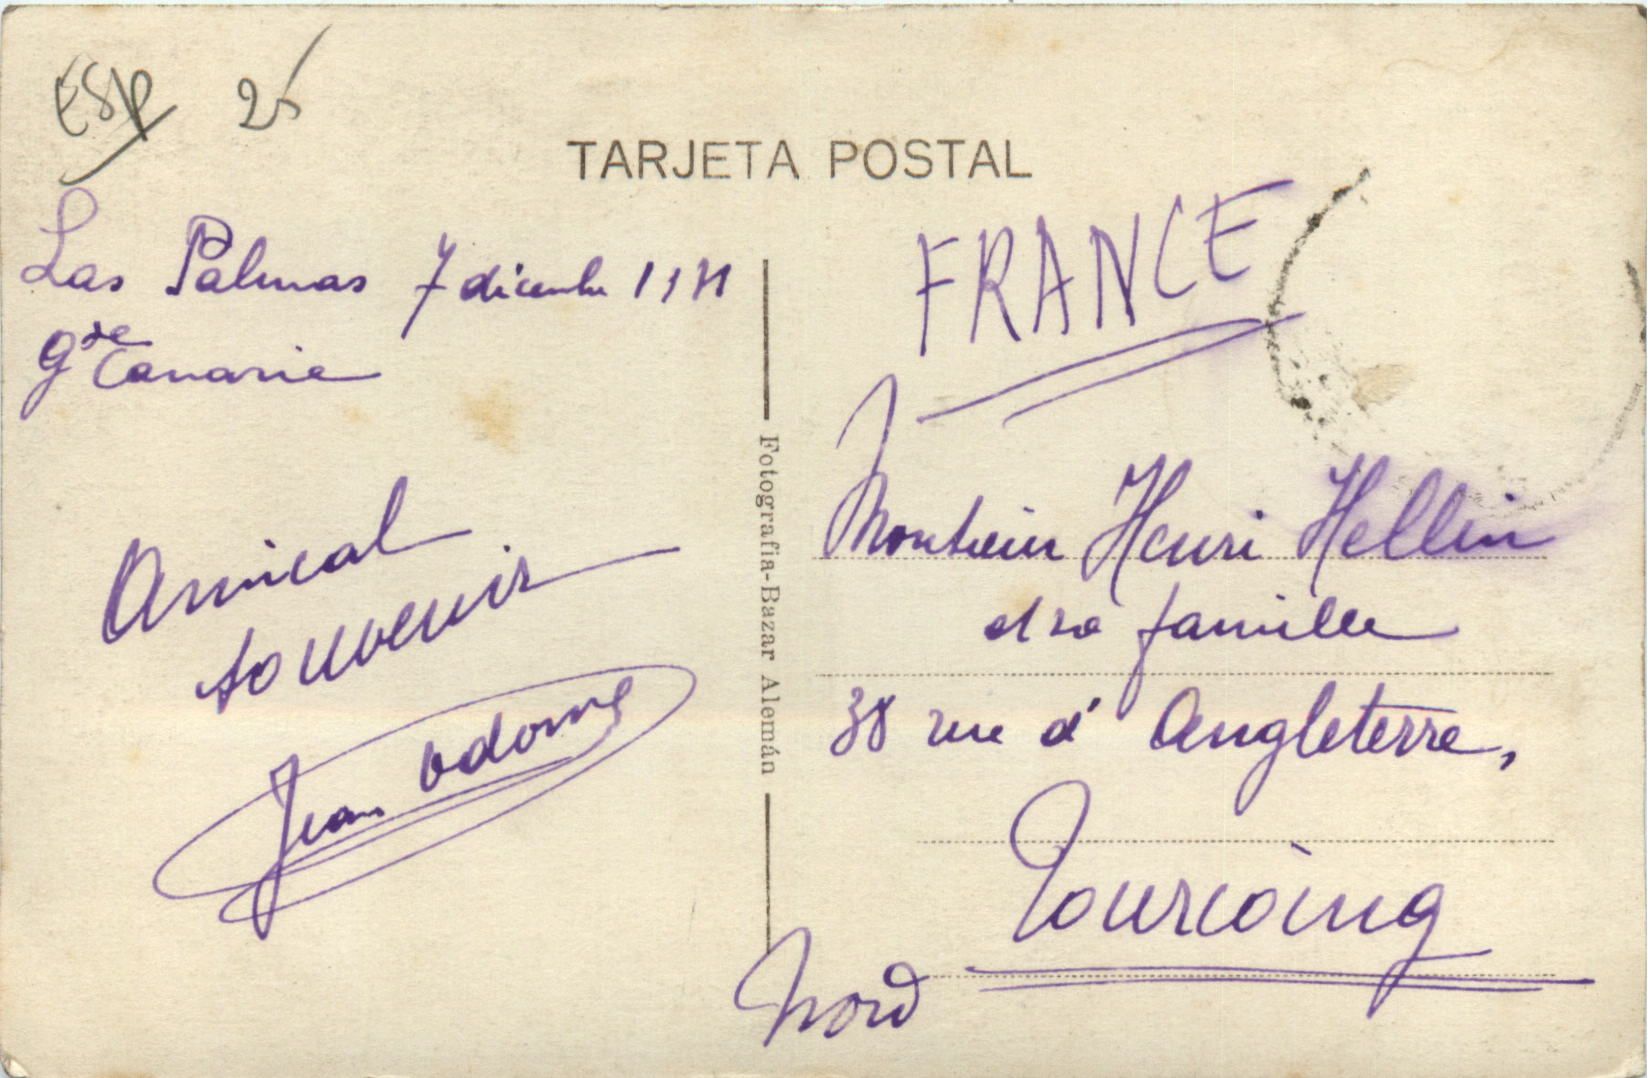 ESP 25
TARJETA POSTAL
Las Palmas 7 dicembre
Gde Canarie
Amical
souvenir
Jean
Fotografia-Bazar Alemán
FRANCE
Monsieur Henri Hellin
et sa famille
38 rue d'Angleterre,
Tourcoing
Nord